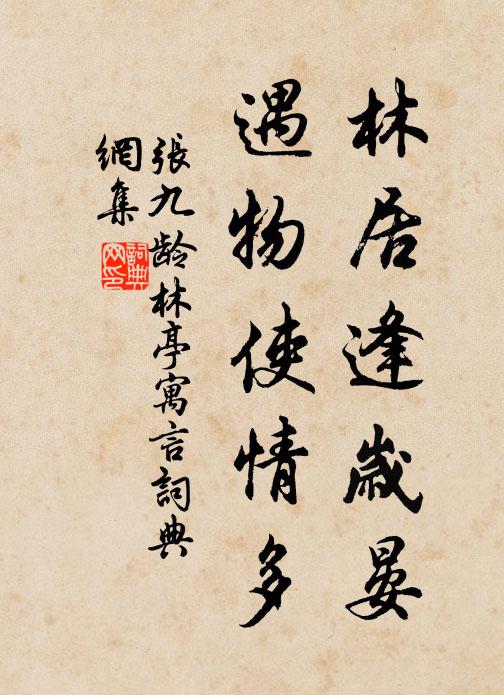 林居逢歲晏
遇物使情多
張九龄林亭寓言詞典
網集
詞典
网印